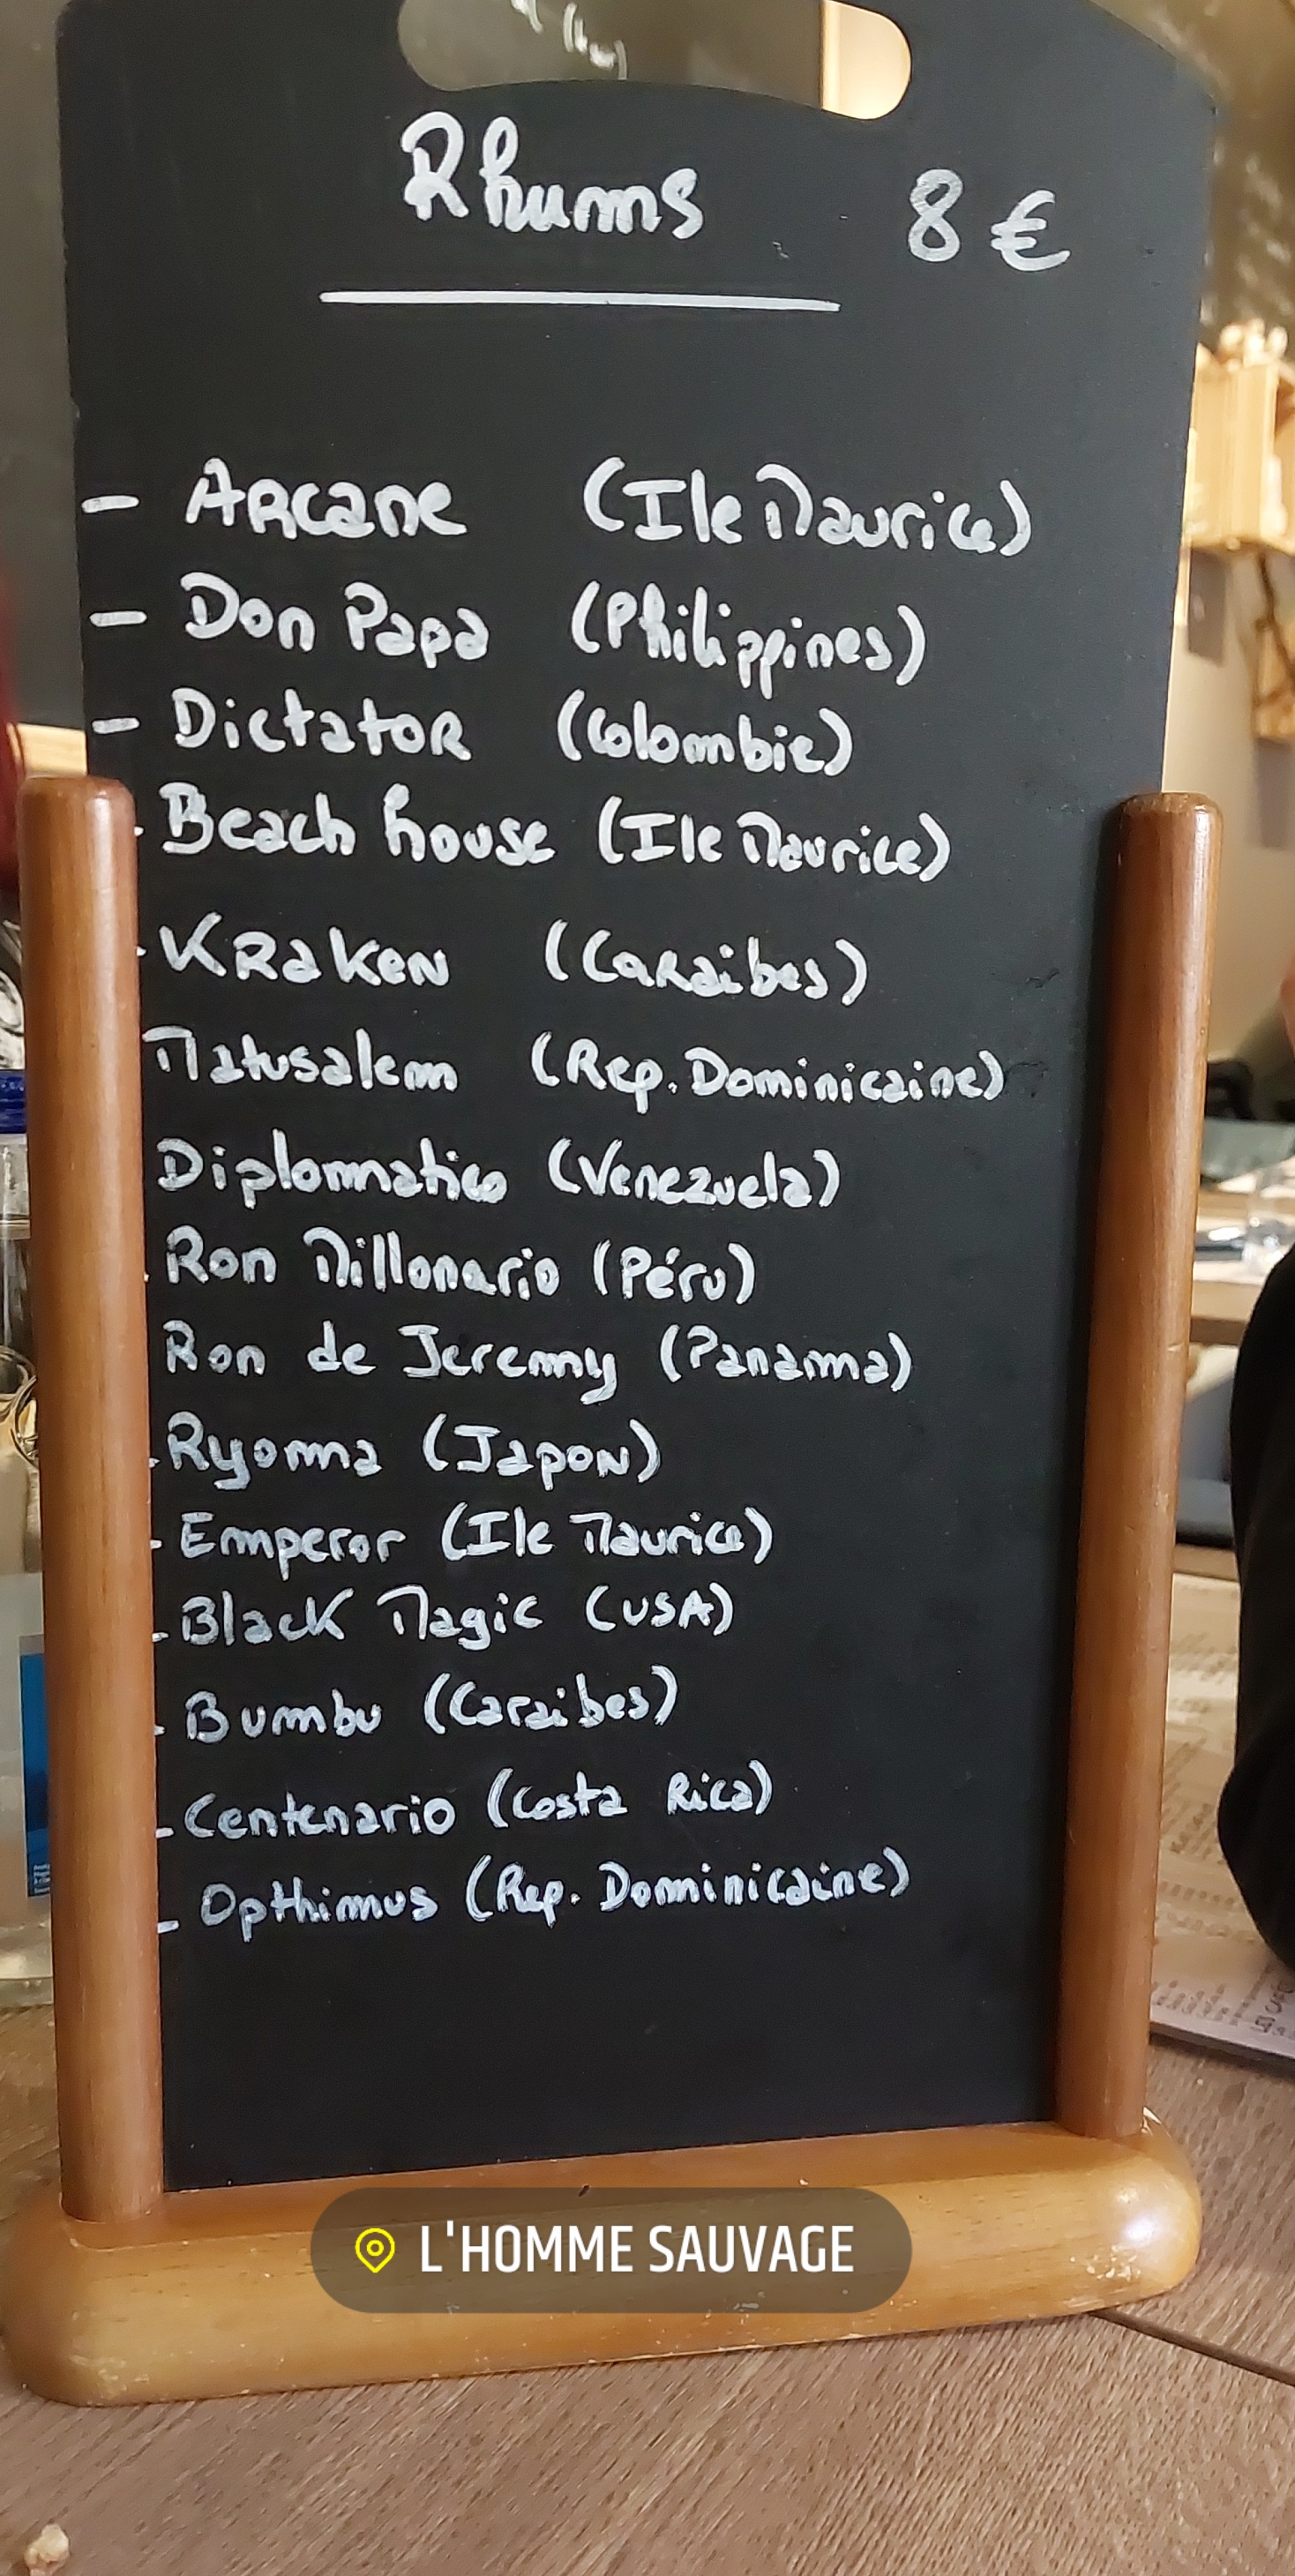 Rhums 8 €
- Arcane (Ile Maurice)
- Don Papa (Philippines)
- Dictator (Colombie)
- Beach house (Ile Maurice)
- Kraken (Caraibes)
Matusalem (Rep. Dominicaine)
Diplomatico (Venezuela)
- Ron Millonario (Péru)
Ron de Jeremy (Panama)
- Ryoma (Japon)
- Emperor (Ile Maurice)
- Black Magic (USA)
- Bumbu (Caraibes)
- Centenario (Costa Rica)
- Opthimus (Rep. Dominicaine)
L'HOMME SAUVAGE